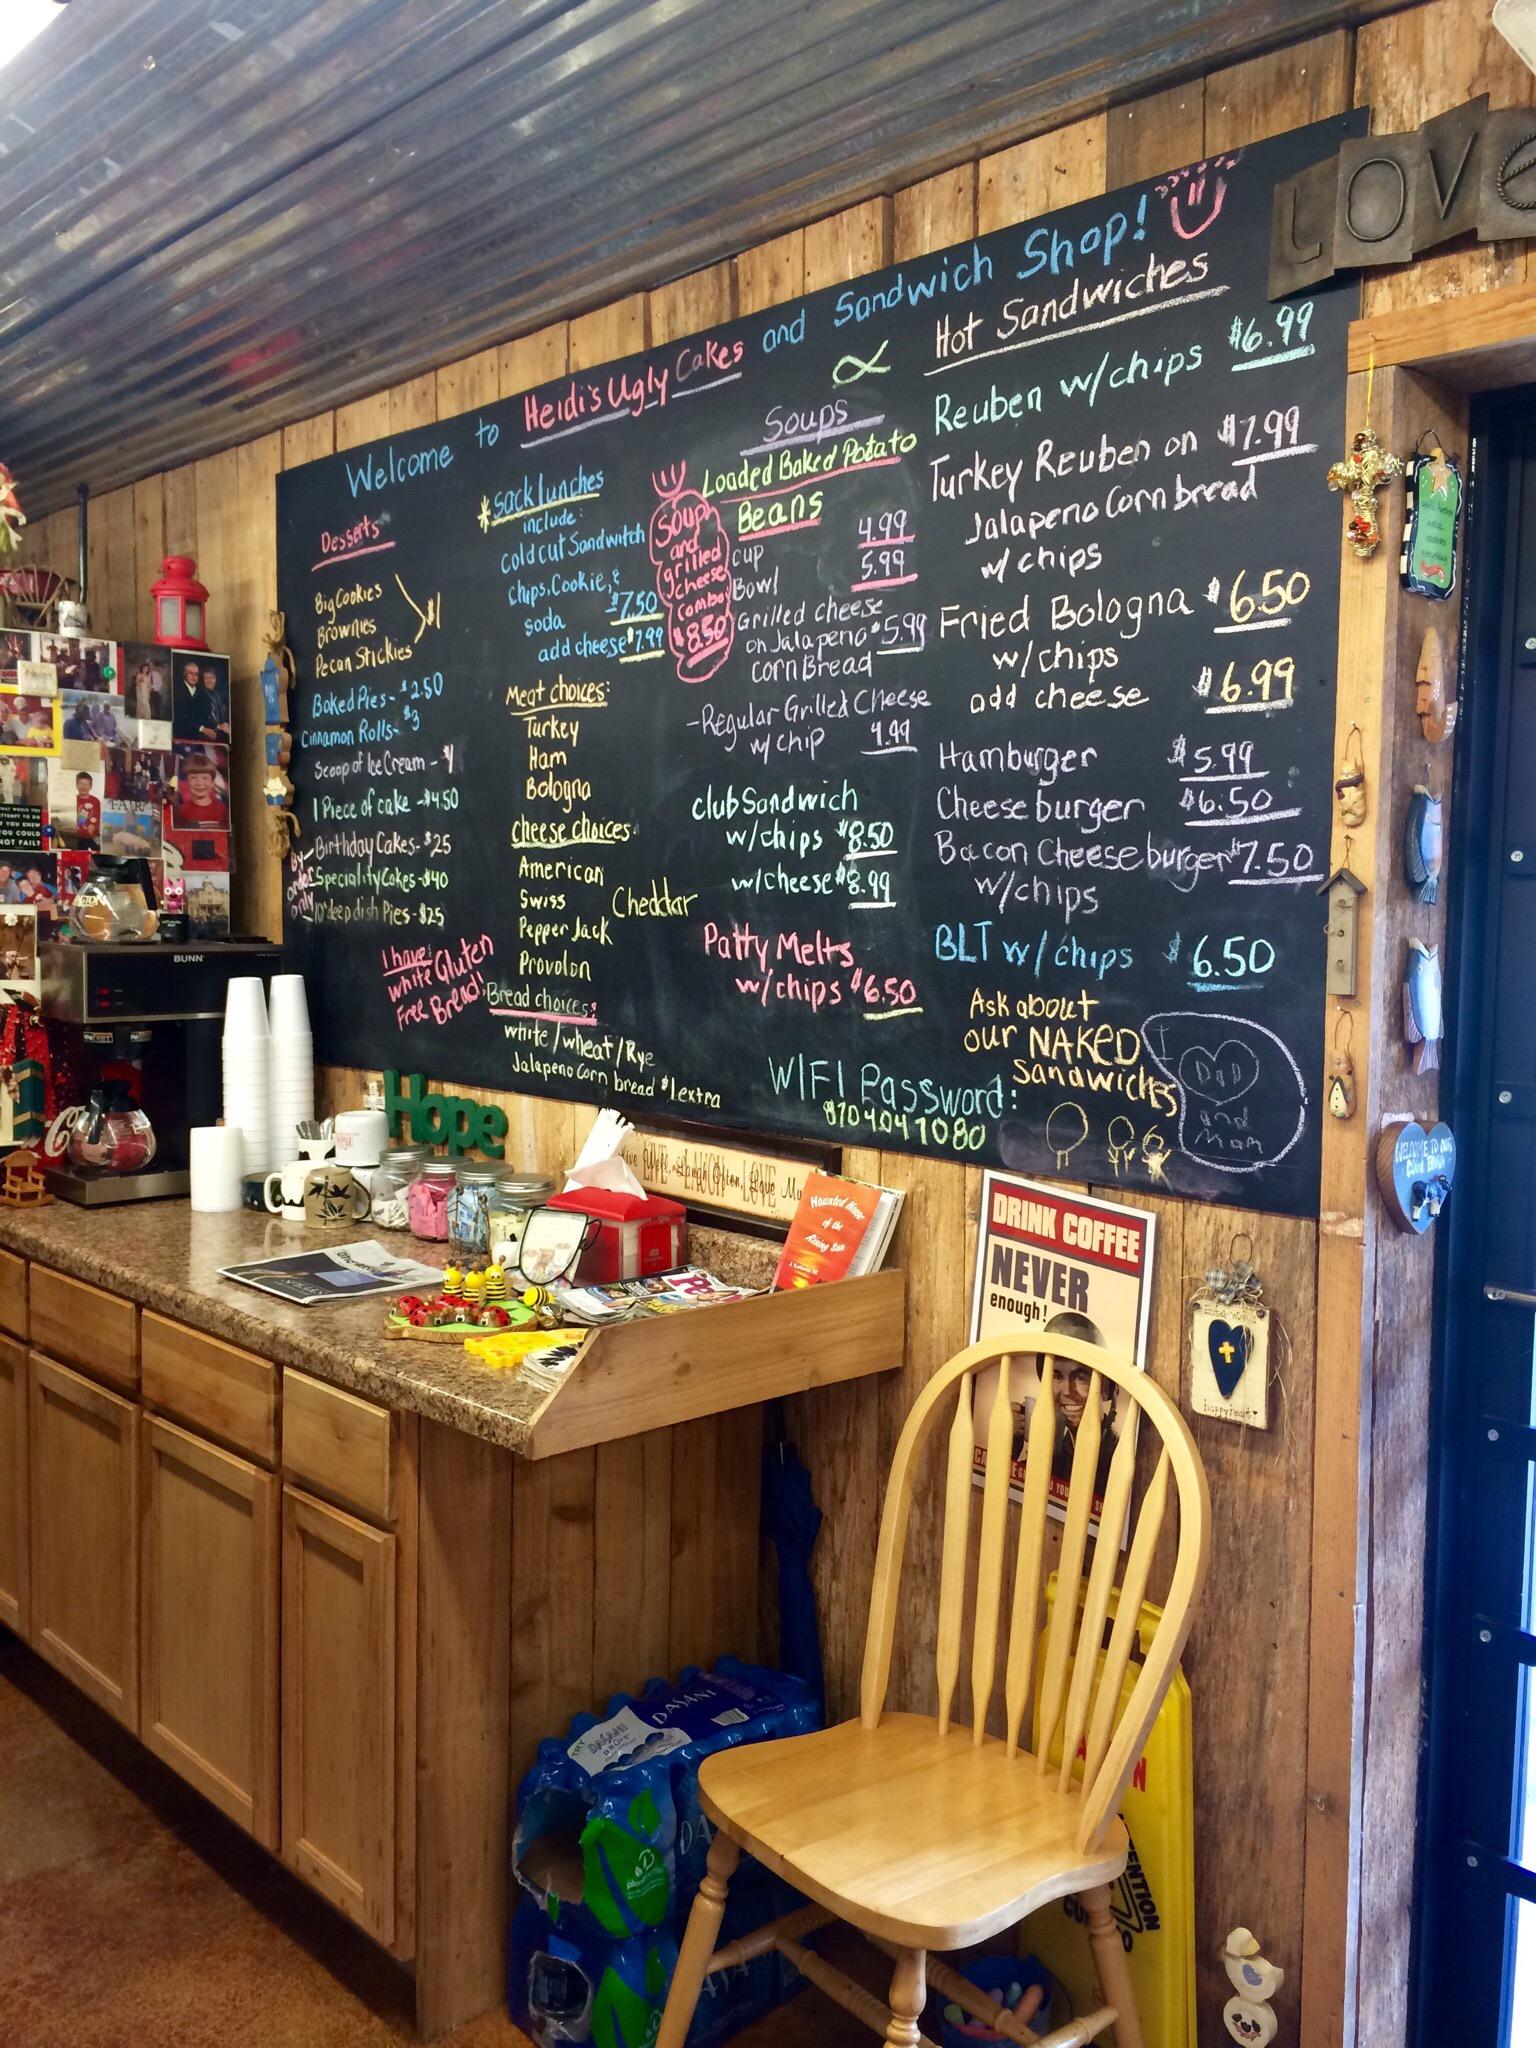 Welcome to Heidi's Ugly Cakes and Sandwich Shop!
Desserts
Big Cookies
Brownies
Pecan Stickies
$1
Baked Pies- $2.50
Cinnamon Rolls- $3
Scoop of Ice Cream - $1
1 Piece of cake -$4.50
Birthday Cakes- $25
Speciality Cakes-$40
10" deep dish Pies - $25
By order only
I have white Gluten Free Bread!
*Sack lunches
include:
cold cut Sandwitch
chips, Cookie, &
soda $7.50
add cheese $7.99
Meat choices:
Turkey
Ham
Bologna
cheese choices:
American
Swiss
Cheddar
Pepper Jack
Provolon
Bread choices:
white/wheat/Rye
Jalapeno Corn bread $1 extra
Soups
Loaded Baked Potato
Beans
cup 4.99
Bowl 5.99
Soup and grilled cheese combo $8.50
Grilled cheese
on Jalapeno $5.99
corn Bread
-Regular Grilled Cheese
w/ chip 4.99
club Sandwich
w/chips $8.50
w/cheese $8.99
Patty Melts
w/chips $6.50
WIFI Password:
8704041080
Hot Sandwiches
Reuben w/chips $6.99
Turkey Reuben on $7.99
Jalapeno Corn bread
w/ chips
Fried Bologna $6.50
w/chips
add cheese $6.99
Hamburger $5.99
Cheese burger $6.50
Bacon Cheese burger $7.50
w/chips
BLT w/chips $6.50
Ask about
our NAKED
Sandwiches
I
DAD
and
Mom
LOVE
Hope
BUNN
DRINK COFFEE
NEVER
enough!
Haunted House
of the
Rising Sun
WELCOME TO OUR
DASANI
TRY
DASANI
DROPS
WHAT WOULD YOU
ATTEMPT TO DO
IF YOU KNEW
YOU COULD
NOT FAIL?